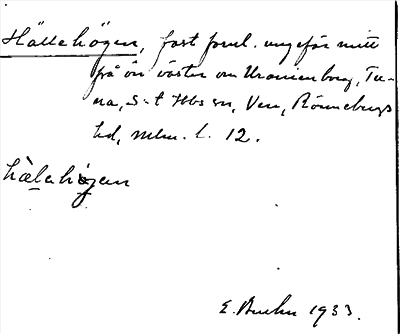 Hällehögen, fast fornl. ungefär mitt
på ön väster om Uranienborg, Tu-
na, S:t Ibs sn, Ven, Rönnebergs
hd, Mlm. l. 12.
hälehögen
E. 1933.